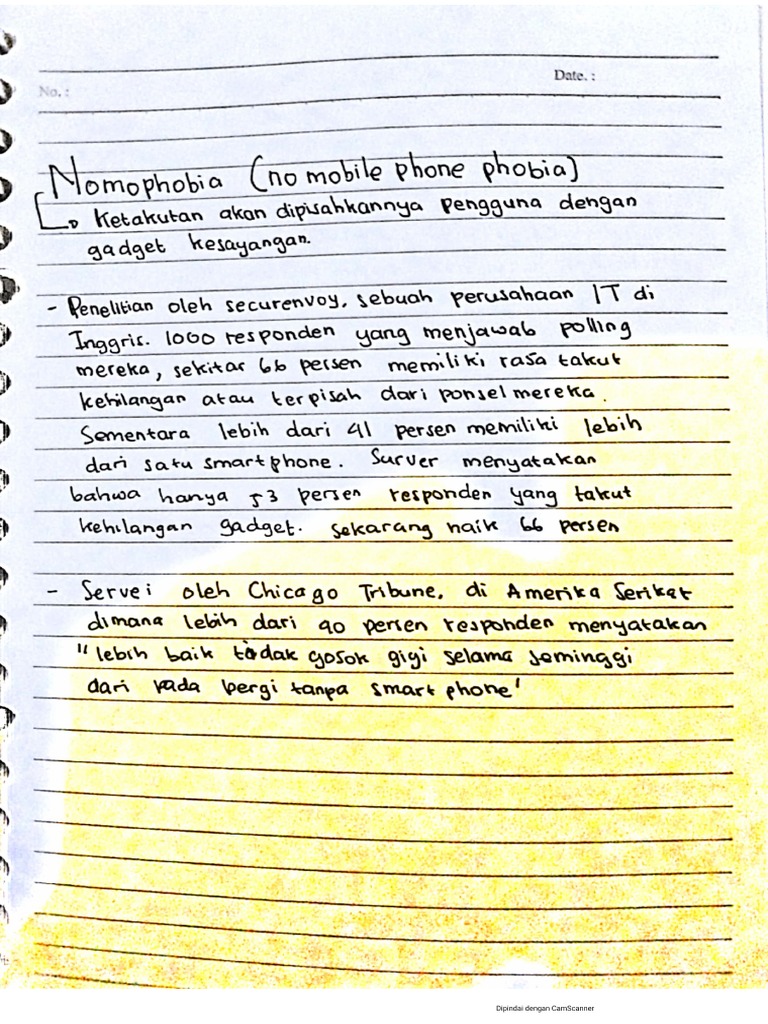 No. :
Date. :
Nomophobia (no mobile phone phobia)
Ketakutan akan dipisahkannya pengguna dengan
gadget kesayangan.
- Penelitian oleh securenvoy, sebuah perusahaan IT di
Inggris. 1000 responden yang menjawab polling
mereka, sekitar 66 persen memiliki rasa takut
kehilangan atau terpisah dari ponsel mereka.
Sementara lebih dari 41 persen memiliki lebih
dari satu smartphone. Surver menyatakan
bahwa hanya 53 persen responden yang takut
kehilangan gadget. sekarang naik 66 persen
- Servei oleh Chicago Tribune, di Amerika Serikat
dimana lebih dari 40 persen responden menyatakan
"lebih baik tidak gosok gigi selama seminggi
dari pada bergi tanpa smart phone"
Dipindai dengan CamScanner